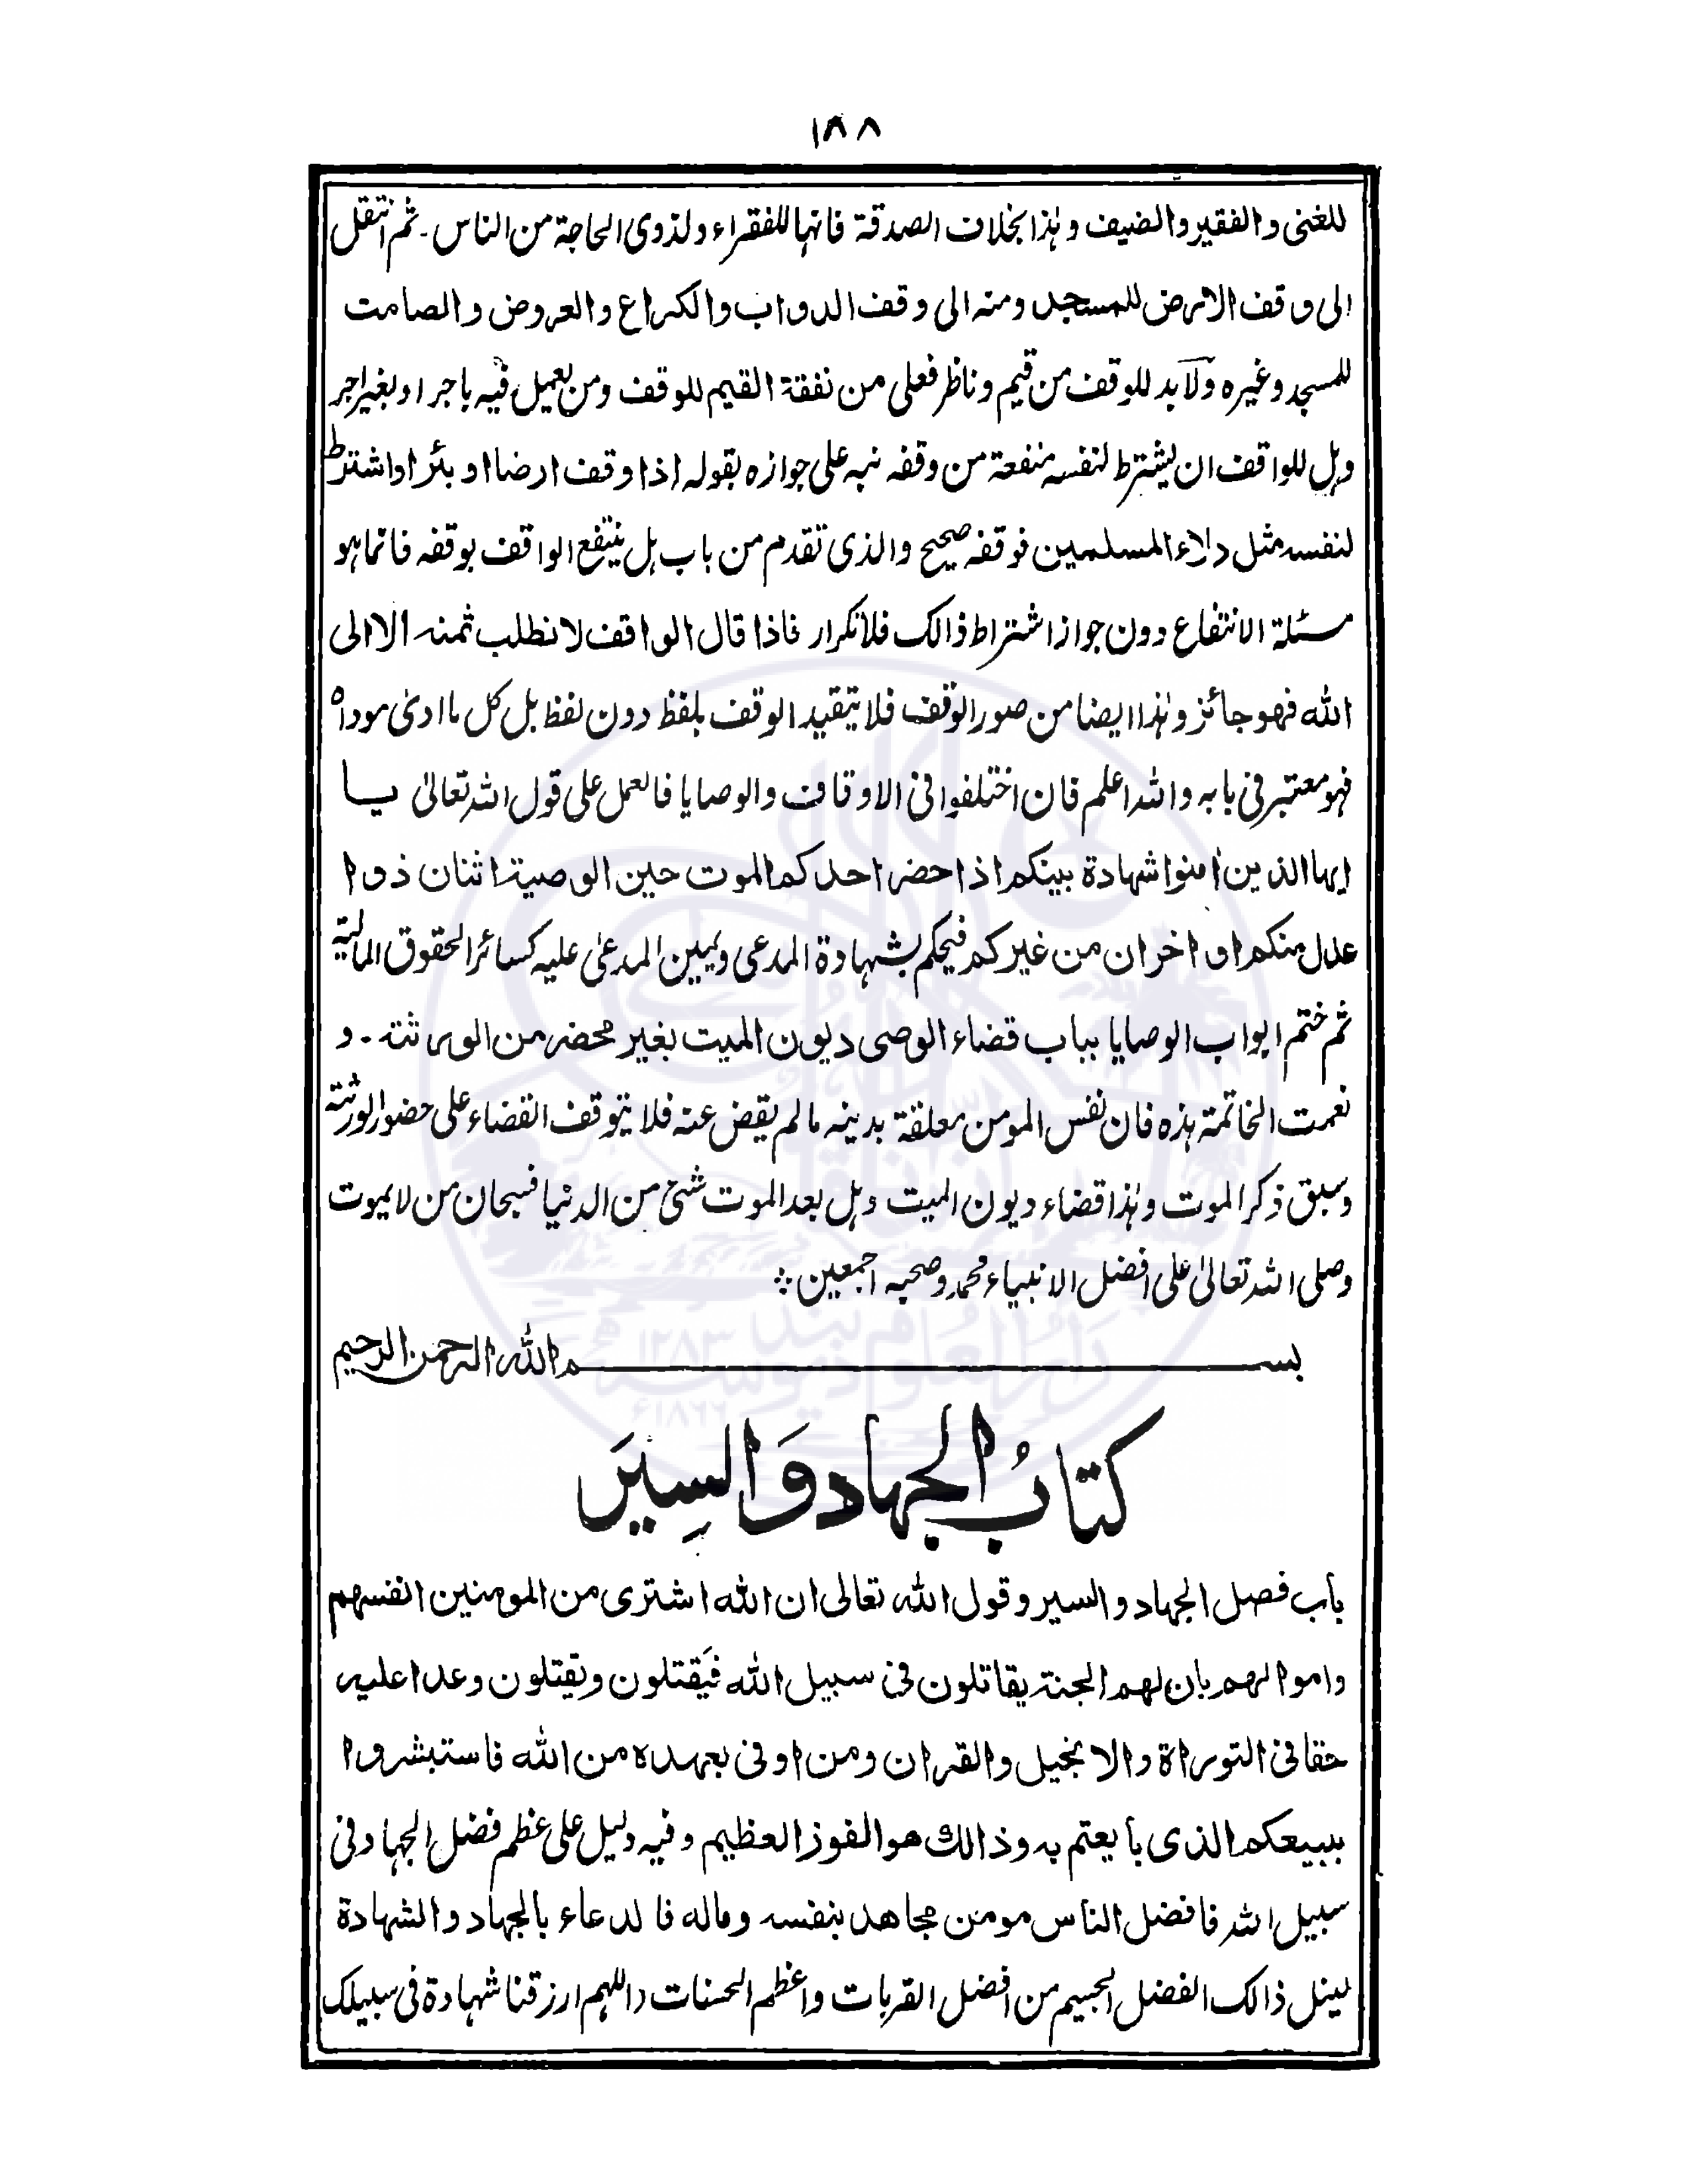 ١٨٨
للغنى والفقير والضيف وهذا بخلاف الصدقة فانها للفقراء ولذوى الحاجة من الناس۔ ثم انتقل
الى وقف الارض للمسجد ومنه الى وقف الدواب والكراع والعروض والصامت
للمسجد وغيره ولابد للوقف من قيم وناظر فعلى من نفقة القيم للوقف ومن يعمل فيه باجر او بغير اجر
وهل للواقف ان يشترط لنفسه منفعة من وقفه نبه على جوازه بقوله اذا وقف ارضا او بئرا او اشترط
لنفسه مثل دلاء المسلمين فوقفه صحيح والذى تقدم من باب هل ينتفع الواقف بوقفه فانما هو
مسئلة الانتفاع دون جواز اشتراط ذالك فلا تكرار فاذا قال الواقف لا نطلب ثمنه الا الى
الله فهو جائز وهذا ايضا من صور الوقف فلا يتقيد الوقف بلفظ دون لفظ بل كل ما ادى موداه
فهو معتبر فى بابه والله اعلم فان اختلفوا فى الاوقاف والوصايا فالعمل على قول الله تعالىٰ يا
ايها الذين اٰمنوا شهادة بينكم اذا حضر احدكم الموت حين الوصية اثنان ذوا
عدل منكم او اخران من غيركم فيحكم بشهادة المدعى ويمين المدعىٰ عليه كسائر الحقوق المالية
ثم ختم ابواب الوصايا بباب قضاء الوصى ديون الميت بغير محضر من الورثة۔ و
نعمت الخاتمة هذه فان نفس المومن معلقة بدينه ما لم يقض عنه فلا يتوقف القضاء على حضور الورثة
وسبق ذكر الموت وهذا قضاء ديون الميت وهل بعد الموت شئ من الدنيا فسبحان من لا يموت
وصلى الله تعالىٰ على افضل الانبياء محمد وصحبه اجمعين
بسم الله الرحمن الرحيم
كتابُ الجهاد وَالسِيَر
باب فضل الجهاد والسير وقول الله تعالى ان الله اشترى من المومنين انفسهم
واموالهم بان لهم الجنة يقاتلون فى سبيل الله فَيقتلون ويقتلون وعدا عليه
حقا فى التوراة والانجيل والقران ومن اوفى بعهده من الله فاستبشروا
ببيعكم الذى بايعتم به وذالك هو الفوز العظيم وفيه دليل على عظم فضل الجهاد فى
سبيل الله فافضل الناس مومن مجاهد بنفسه وماله فالدعاء بالجهاد والشهادة
لينل ذالك الفضل الجسيم من افضل القربات واعظم الحسنات واللهم ارزقنا شهادة فى سبيلك